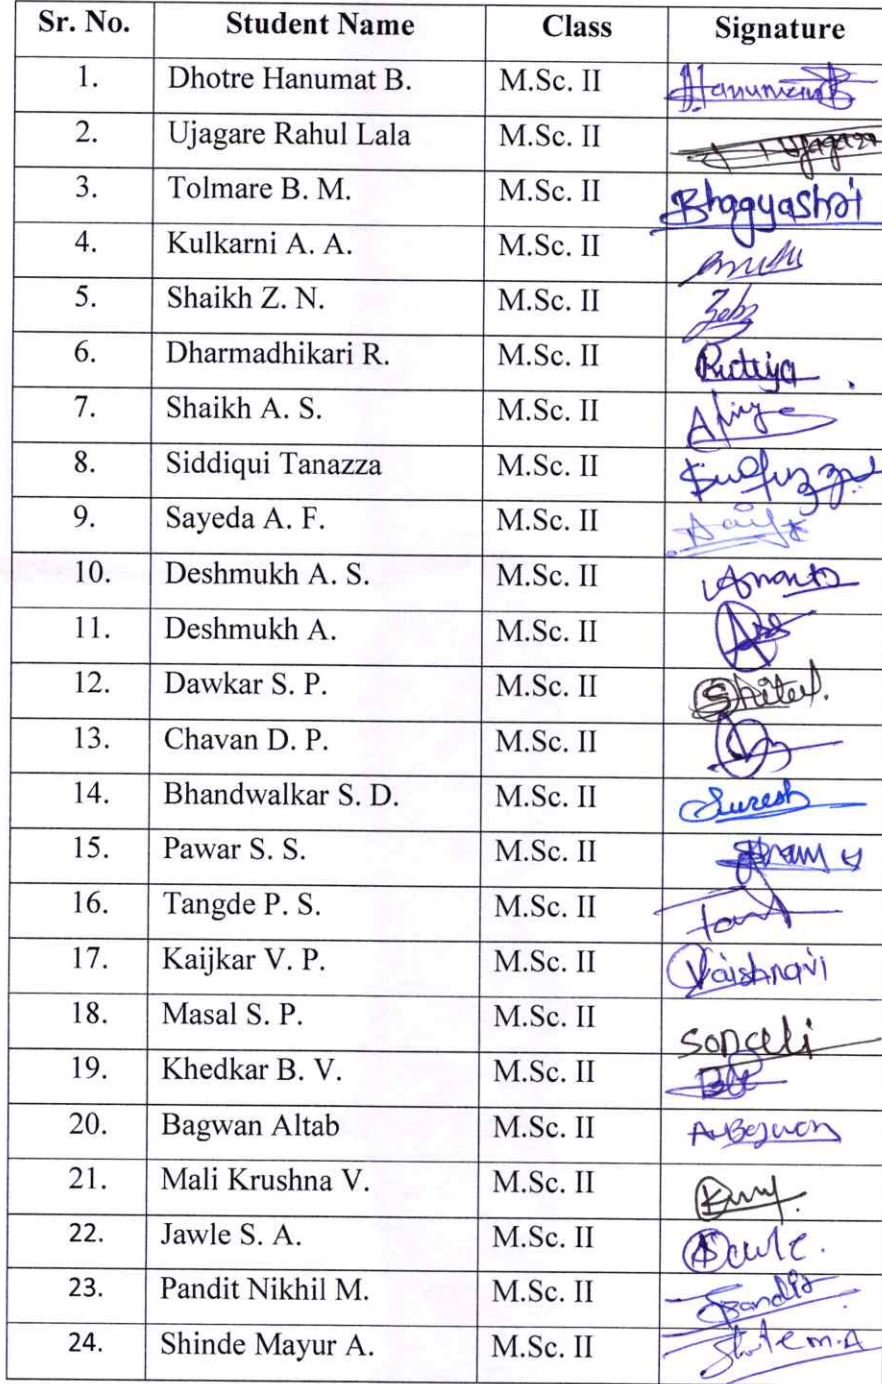 Sr. No. Student Name Class Signature
1. Dhotre Hanumat B. M.Sc. II Hanumant
2. Ujagare Rahul Lala M.Sc. II
3. Tolmare B. M. M.Sc. II Bhagyashri
4. Kulkarni A. A. M.Sc. II
5. Shaikh Z. N. M.Sc. II
6. Dharmadhikari R. M.Sc. II Rutuja
7. Shaikh A. S. M.Sc. II
8. Siddiqui Tanazza M.Sc. II
9. Sayeda A. F. M.Sc. II
10. Deshmukh A. S. M.Sc. II
11. Deshmukh A. M.Sc. II
12. Dawkar S. P. M.Sc. II
13. Chavan D. P. M.Sc. II
14. Bhandwalkar S. D. M.Sc. II Suresh
15. Pawar S. S. M.Sc. II
16. Tangde P. S. M.Sc. II
17. Kaijkar V. P. M.Sc. II Vaishnavi
18. Masal S. P. M.Sc. II Sonali
19. Khedkar B. V. M.Sc. II
20. Bagwan Altab M.Sc. II
21. Mali Krushna V. M.Sc. II
22. Jawle S. A. M.Sc. II
23. Pandit Nikhil M. M.Sc. II Pandit
24. Shinde Mayur A. M.Sc. II